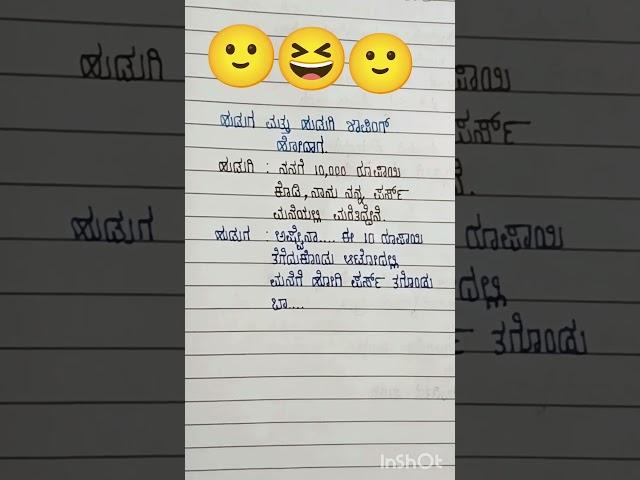 ಹುಡುಗ ಮತ್ತು ಹುಡುಗಿ ಶಾಪಿಂಗ್
ಹೋದಾಗ.
ಹುಡುಗಿ : ನನಗೆ 10,000 ರೂಪಾಯಿ
ಕೊಡಿ, ನಾನು ನನ್ನ ಪರ್ಸ್
ಮನೆಯಲ್ಲಿ ಮರೆತಿದ್ದೇನೆ.
ಹುಡುಗ : ಅಷ್ಟೇನಾ.... ಈ 10 ರೂಪಾಯಿ
ತೆಗೆದುಕೊಂಡು ಆಟೋದಲ್ಲಿ
ಮನೆಗೆ ಹೋಗಿ ಪರ್ಸ್ ತಗೊಂಡು
ಬಾ....
InShOt